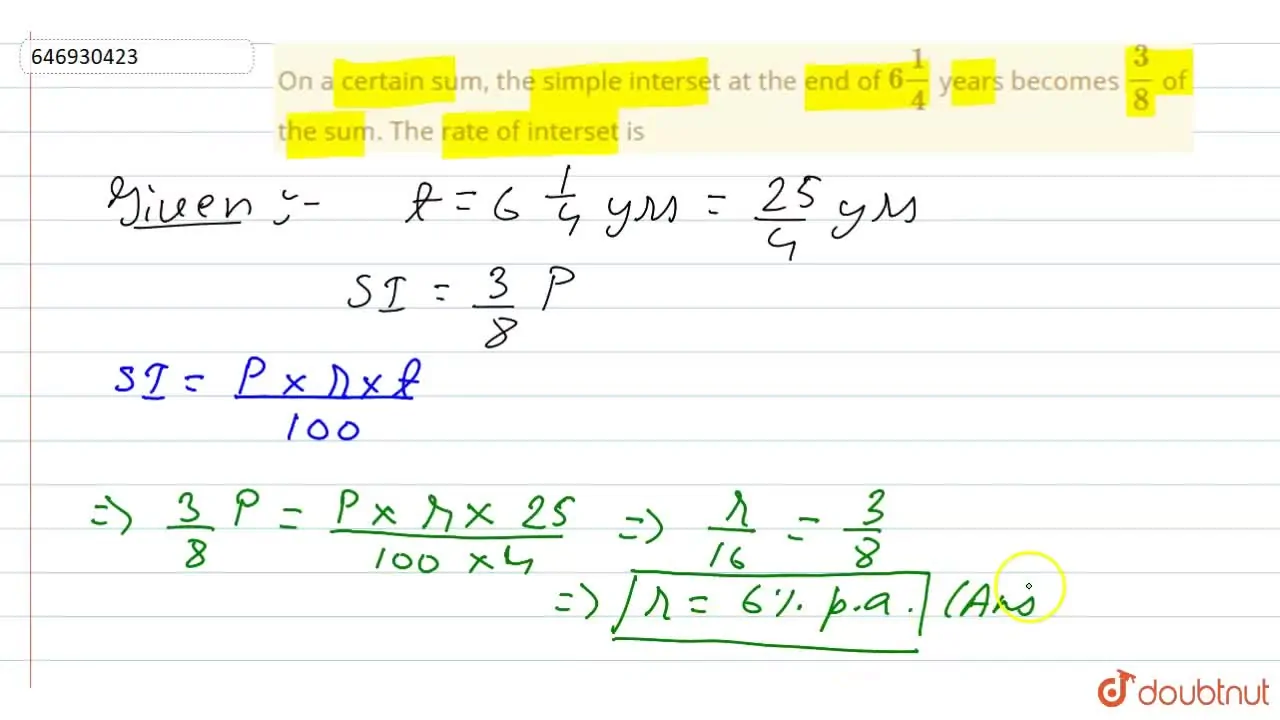 646930423
On a certain sum, the simple interset at the end of 6 1/4 years becomes 3/8 of
the sum. The rate of interset is
Given :- t = 6 1/4 yrs = 25/4 yrs
SI = 3/8 P
SI = P × r × t / 100
=> 3/8 P = P × r × 25 / 100 × 4 => r/16 = 3/8
=> r = 6% p.a. (Ans
doubtnut